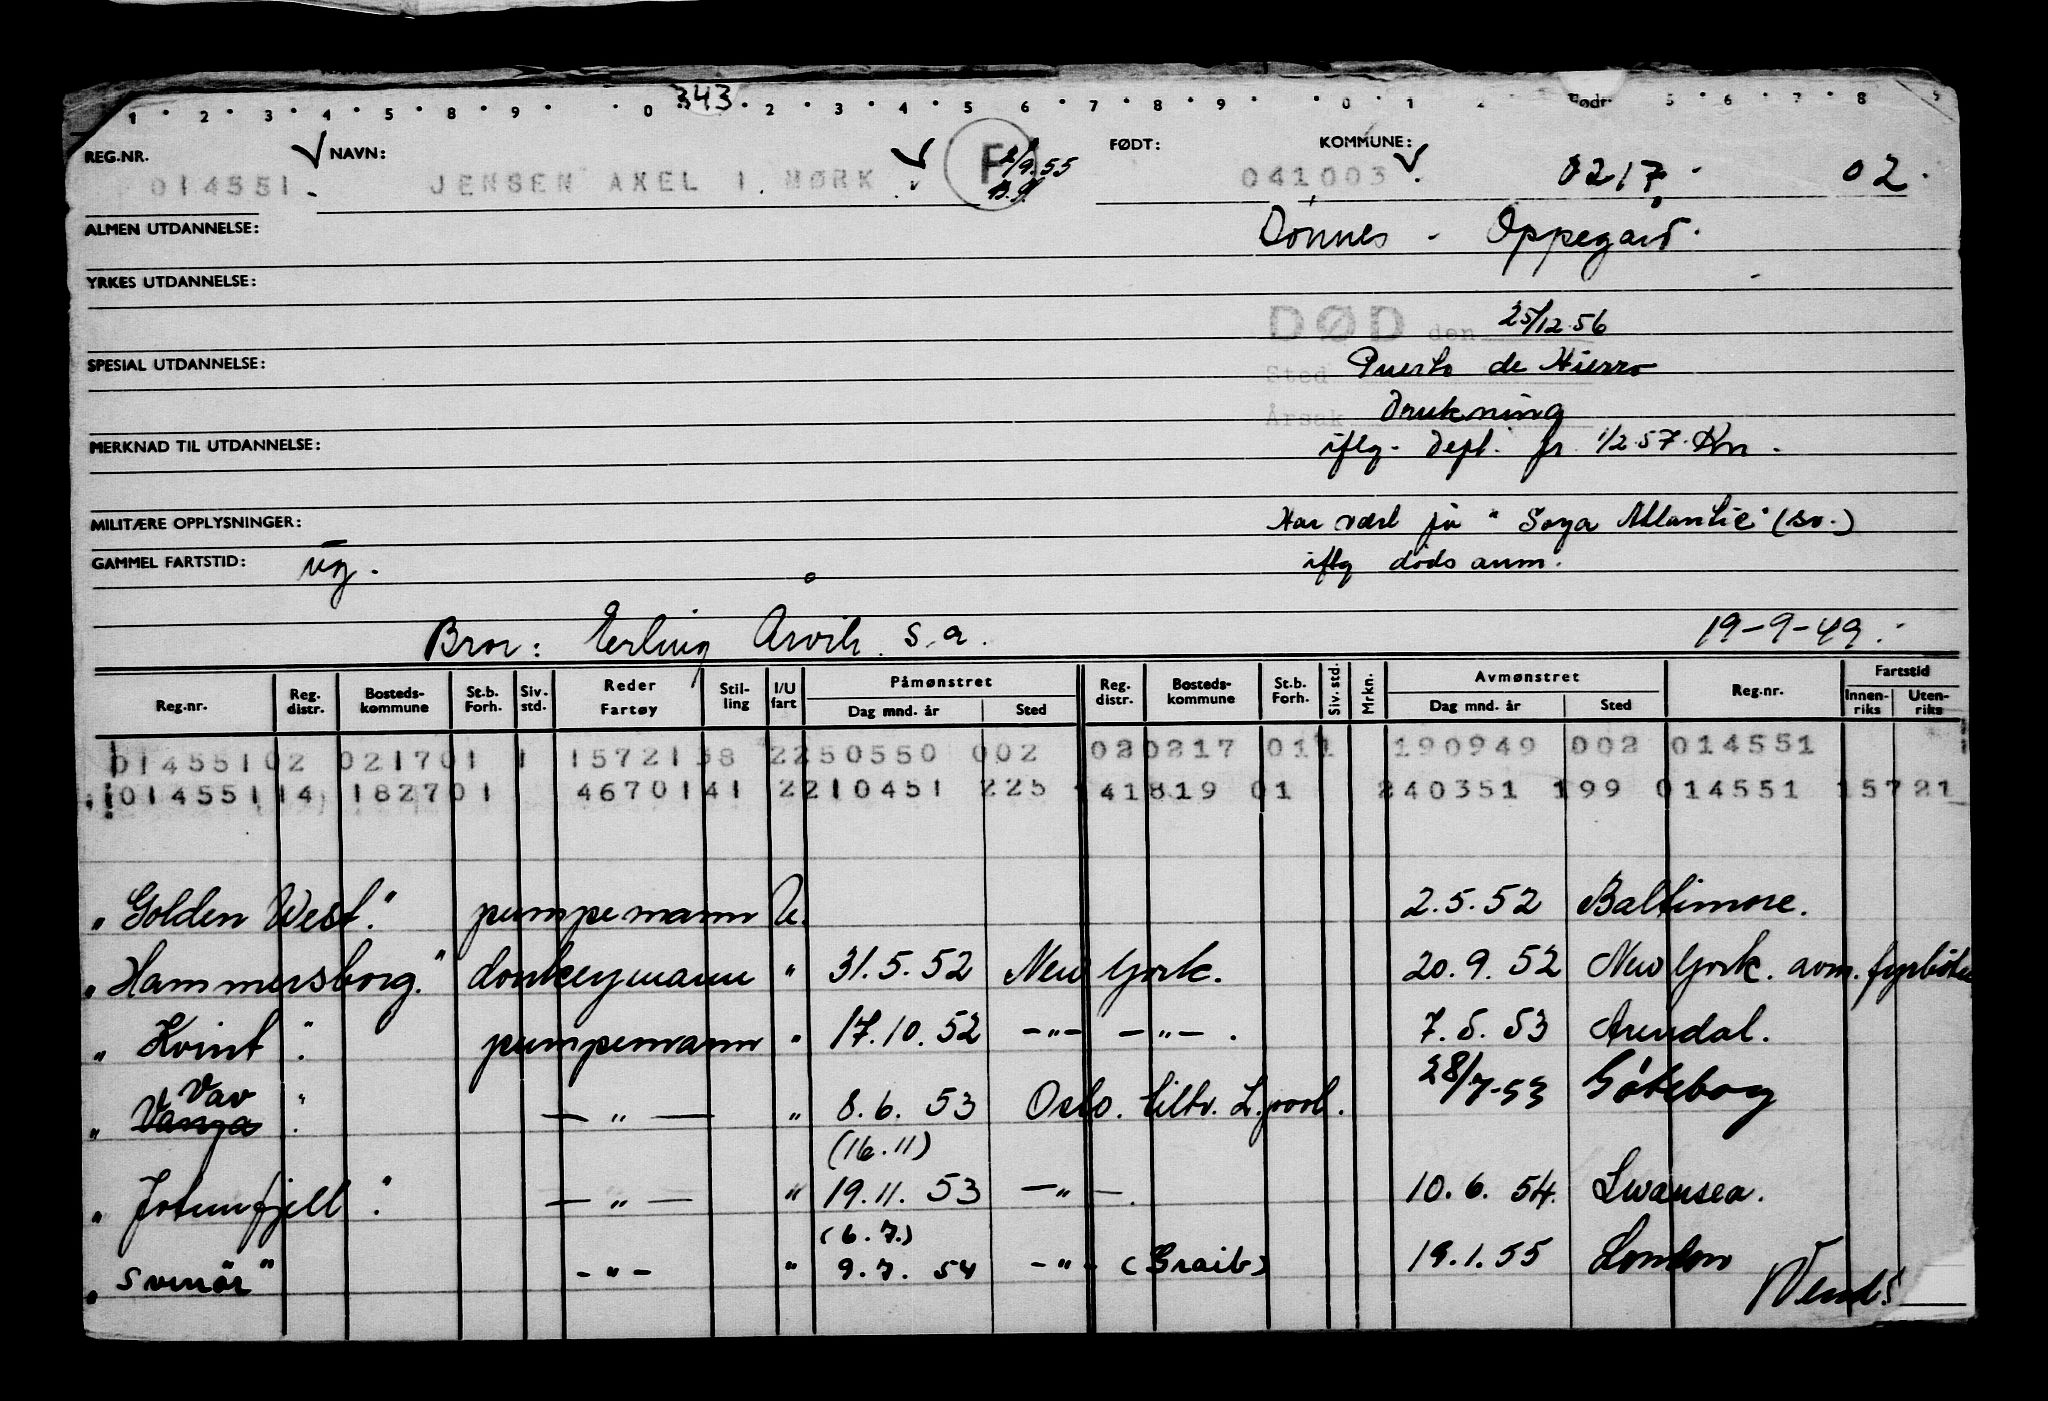 1 2 3 4 5 8 9 0 343 2 3 4 5 6 7 8 9 0 1 Født: 5 6 7 8 9
REG.NR. NAVN: FØDT: KOMMUNE:
014551 JENSEN AXEL I. MØRK F 2/9.55 041003 0217 02.
ALMEN UTDANNELSE: Dönnes - Oppegård.
YRKES UTDANNELSE:
DØD den 25/12.56
SPESIAL UTDANNELSE: Sted Puerto de Hierro
Årsak Drukning
MERKNAD TIL UTDANNELSE: iflg. Dept. fr. 1/2.57. Kn.
MILITÆRE OPPLYSNINGER: Har vært på "Soya Atlantic" (sv.)
GAMMEL FARTSTID: ug. iflg döds anm.
Bror: Erling Arvik s.a. 19-9-49.
Reg.nr. Reg. distr. Bosteds- kommune St.b. Forh. Siv. std. Reder Fartøy Stil- ling I/U fart Påmønstret Dag mnd. år Sted Reg. distr. Bosteds- kommune St.b. Forh. Siv. std. Mrkn. Avmønstret Dag mnd. år Sted Reg.nr. Fartstid Innen- riks Uten- riks
01455102 021701 1 1572138 2250550 002 020217 011 190949 002 014551
01455114 182701 4670141 2210451 225 41819 01 240351 199 014551 15721
"Golden West." pumpemann U. 2.5.52 Baltimore.
"Hammersborg." donkeymann " 31.5.52 New York. 20.9.52 New York. avm. fyrböter
"Kvint". pumpemann " 17.10.52 -"- -"-. 7.5.53 Arendal.
Vav
"Vanja". -"- " 8.6.53 Oslo. tiltr. L.pool. 28/7-53 Göteborg
(16.11)
"Jotunfjell". -"- " 19.11.53 -"-. 10.6.54. Swansea.
(6.7.)
"Svenör" -"- " 9.7.54 -"- (Graib) 19.1.55 London
Vend!